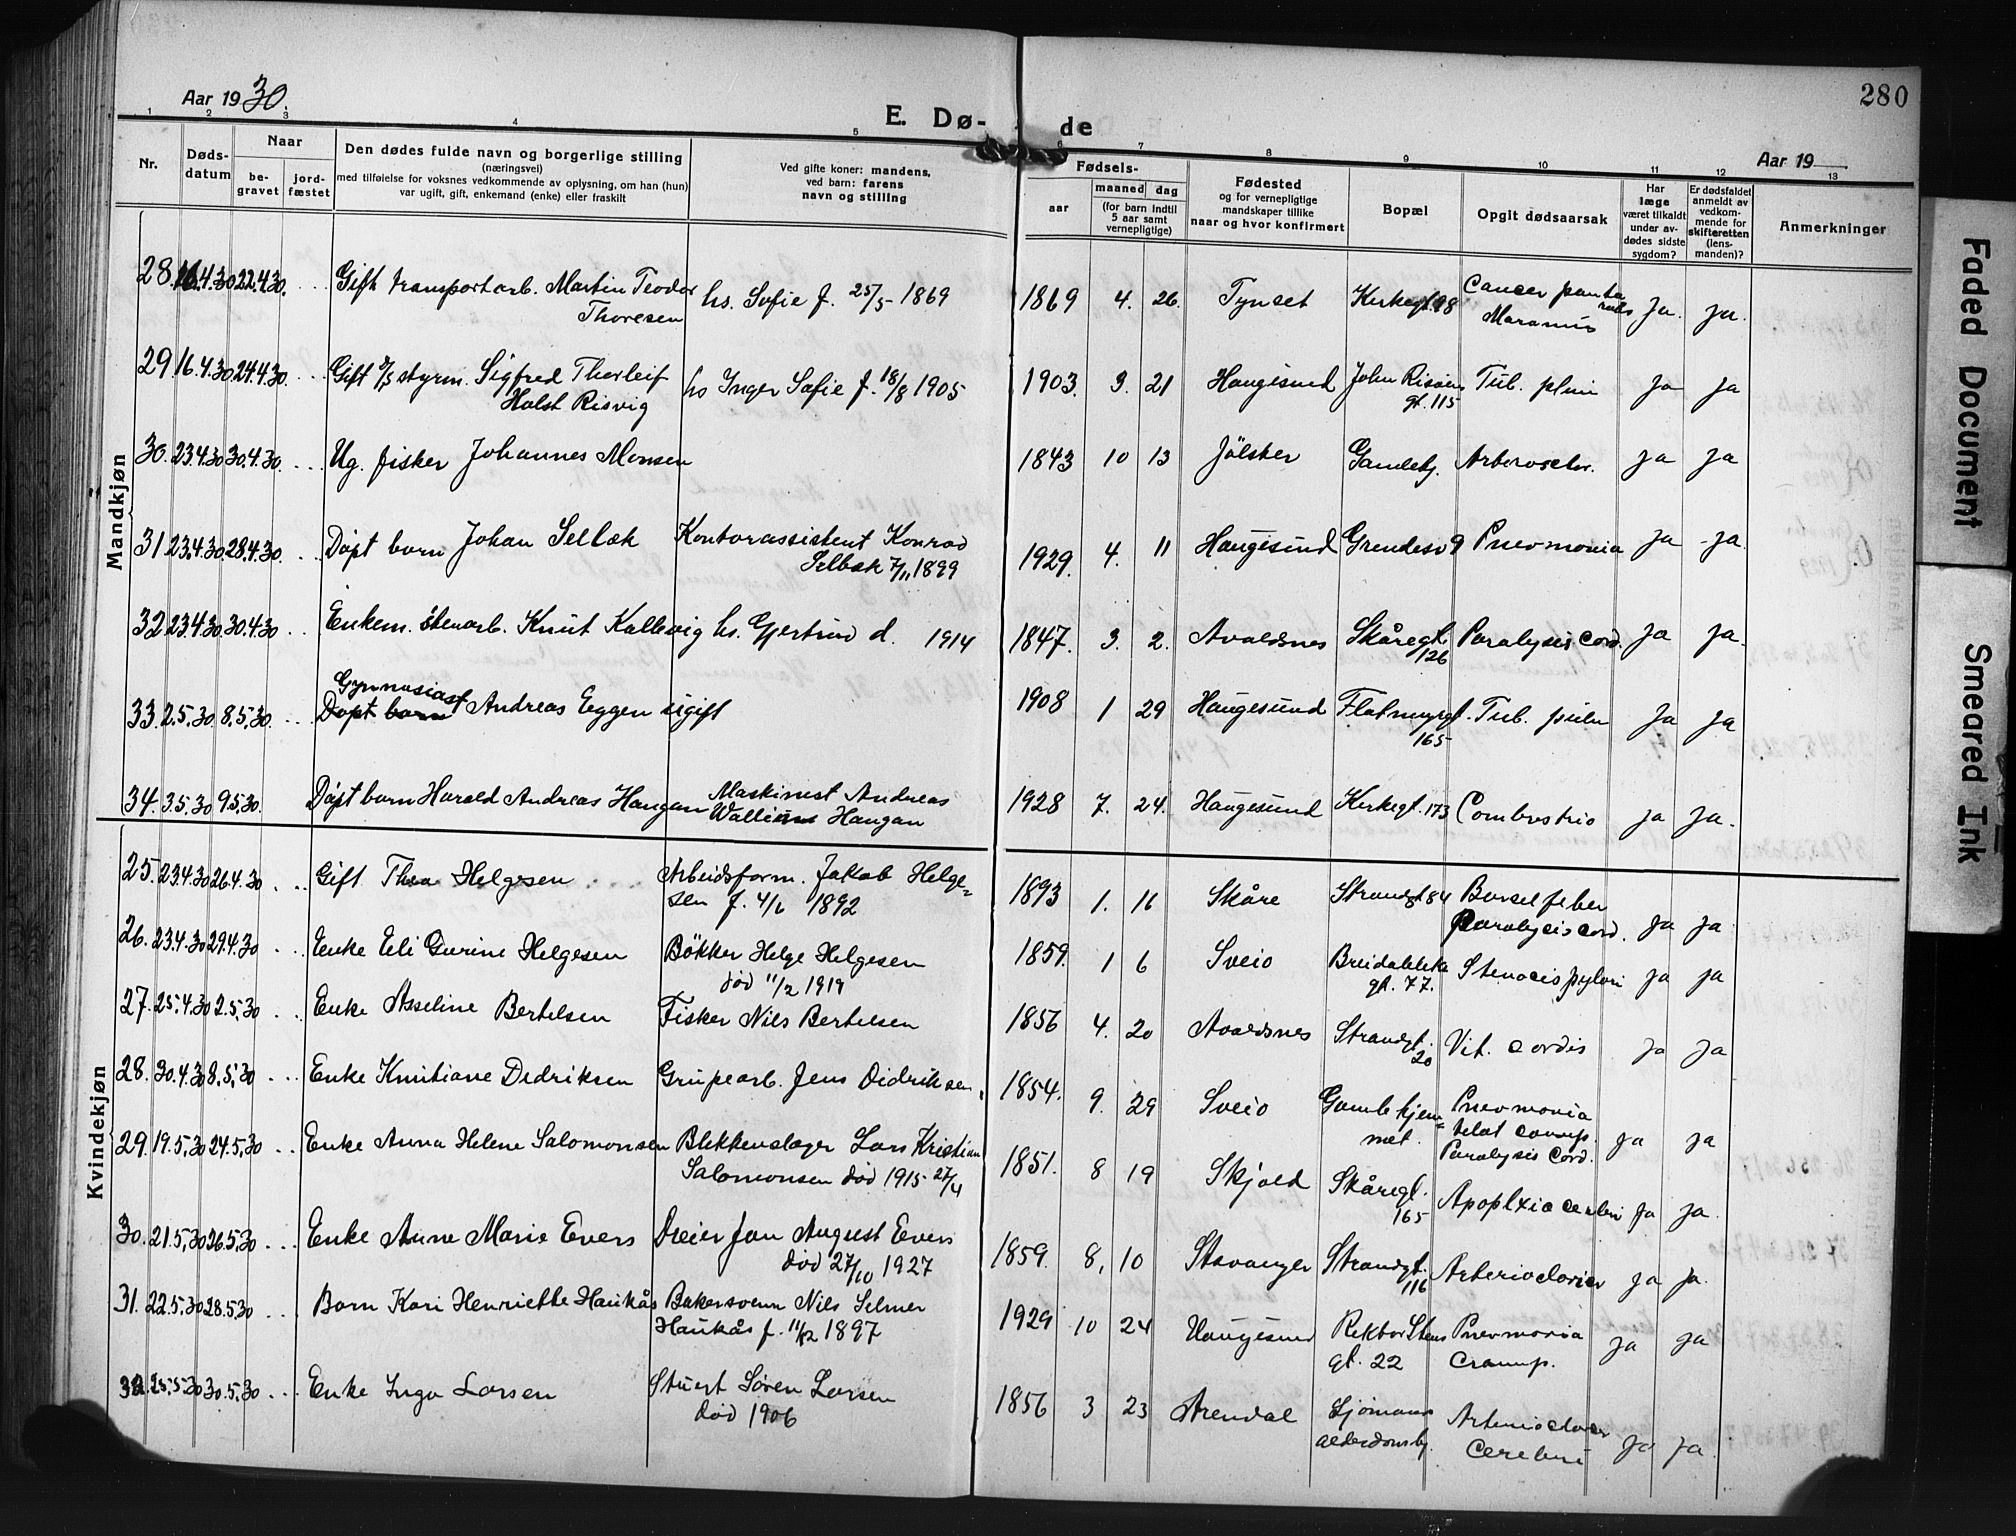 280
Aar 1930.
E. Dø- de
Aar 19
1 2 3 4 5 6 7 8 9 10 11 12 13
Nr.
Døds-
datum
Naar
be-
gravet
jord-
fæstet
Den dødes fulde navn og borgerlige stilling
(næringsvei)
med tilføielse for voksnes vedkommende av oplysning, om han (hun)
var ugift, gift, enkemand (enke) eller fraskilt
Ved gifte koner: mandens,
ved barn: farens
navn og stilling
Fødsels-
aar
maaned dag
(for barn indtil
5 aar samt
vernepligtige)
Fødested
og for vernepligtige
mandskaper tillike
naar og hvor konfirmert
Bopæl
Opgit dødsaarsak
Har
læge
været tilkaldt
under av-
dødes sidste
sygdom?
Er dødsfaldet
anmeldt av
vedkom-
mende for
skifteretten
(lens-
manden)?
Anmerkninger
Mandkjøn
28. 16.4.30 22.4.30. Gift transportarb. Martin Teodor hs. Sofie f. 25/5 1869 1869 4. 26. Tynset Kirkegt. 98 Cancer Ja. ja.
Thoresen Marasmus
29 16.4.30 24.4.30. Gift styrm. Sigfred Thorleif hs Inger Sofie f. 18/8 1905 1903. 3. 21 Haugesund John Risøens Tub. pulm ja ja
Holst Risvig gt. 115
30. 23.4.30 30.4.30. Ug. fisker Johannes Monsen 1843 10 13 Jölster Gamlehj. Arterioscler. ja ja
31. 23.4.30 28.4.30. Døpt barn Johan Selbæk Kontorassistent Konrad 1929. 4. 11 Haugesund 9 Pnevmonia ja ja
Selbæk 7/11 1899
32. 23.4.30. 30.4.30 Enkem. stenarb. Knut Kallevig hs. Gjertrud d. 1914 1847. 3. 2. Avaldsnes Skåregt. Paralysis cord. ja ja.
126
Gymnasiast
33. 2.5.30. 8.5.30. Døpt barn Andreas Eggen ugift 1908 1 29 Haugesund Flotmyrgt. Tub. pulm ja ja
165
34. 3.5.30 9.5.30. Døpt barn Harald Andreas Haugan Maskinist Andreas 1928 7. 24. Haugesund Kirkegt. 173 Combustio ja ja.
Haugan
Kvindekjøn
25. 23.4.30 26.4.30 Gift Thea Helgesen Arbeidsform. Jakob Helge= 1893 1. 16 Skåre Strandgt 84 Barselfeber
sen f. 4/6 1892 Paralysis cord. ja ja
26. 23.4.30 29.4.30 Enke Eli Gurine Helgesen Bökker Helge Helgesen 1859. 1 6 Sveio Breidablik Stenocis pylori ja ja
död 11/2 1919 gt. 77.
27. 25.4.30 2.5.30 Enke Asseline Bertelsen Fisker Nils Bertelsen 1856 4. 20 Avaldsnes Strandgt. Vit. cordis ja ja
20
28. 30.4.30 8.5.30 Enke Kristiane Dedriksen Grupearb. Jens Didriksen. 1854. 9. 29 Sveio Gamle hjem= Pnevmonia
met. bilat croup. ja ja
Paralysis Cord.
29. 19.5.30 24.5.30 Enke Anna Helene Salomonsen Blikkenslager Lars Kristian 1851. 8 19 Skjold Skåregt. Apoplxia cerebri ja ja.
Salomonsen död 1915 27/4 165
30. 21.5.30 26.5.30 Enke Anne Marie Evers Dreier Jan August Evers 1859. 8. 10 Stavanger Strandgt. ja ja.
död 27/10 1927 116
31. 22.5.30 28.5.30 Barn Kari Henriette Haukås Bakersvenn Nils Selmer 1929 10 24 Haugesund Rektor Stens Pnevmonia
Haukås f. 11/12 1897 gt. 22 Croup. ja ja
32. 25.5.30 30.5.30 Enke Inga Larsen Stuert Sören Larsen 1856 3 23 Arendal Sjömans
död 1906 alderdomshj. Cerebri ja ja.
Faded Document
Smeared Ink